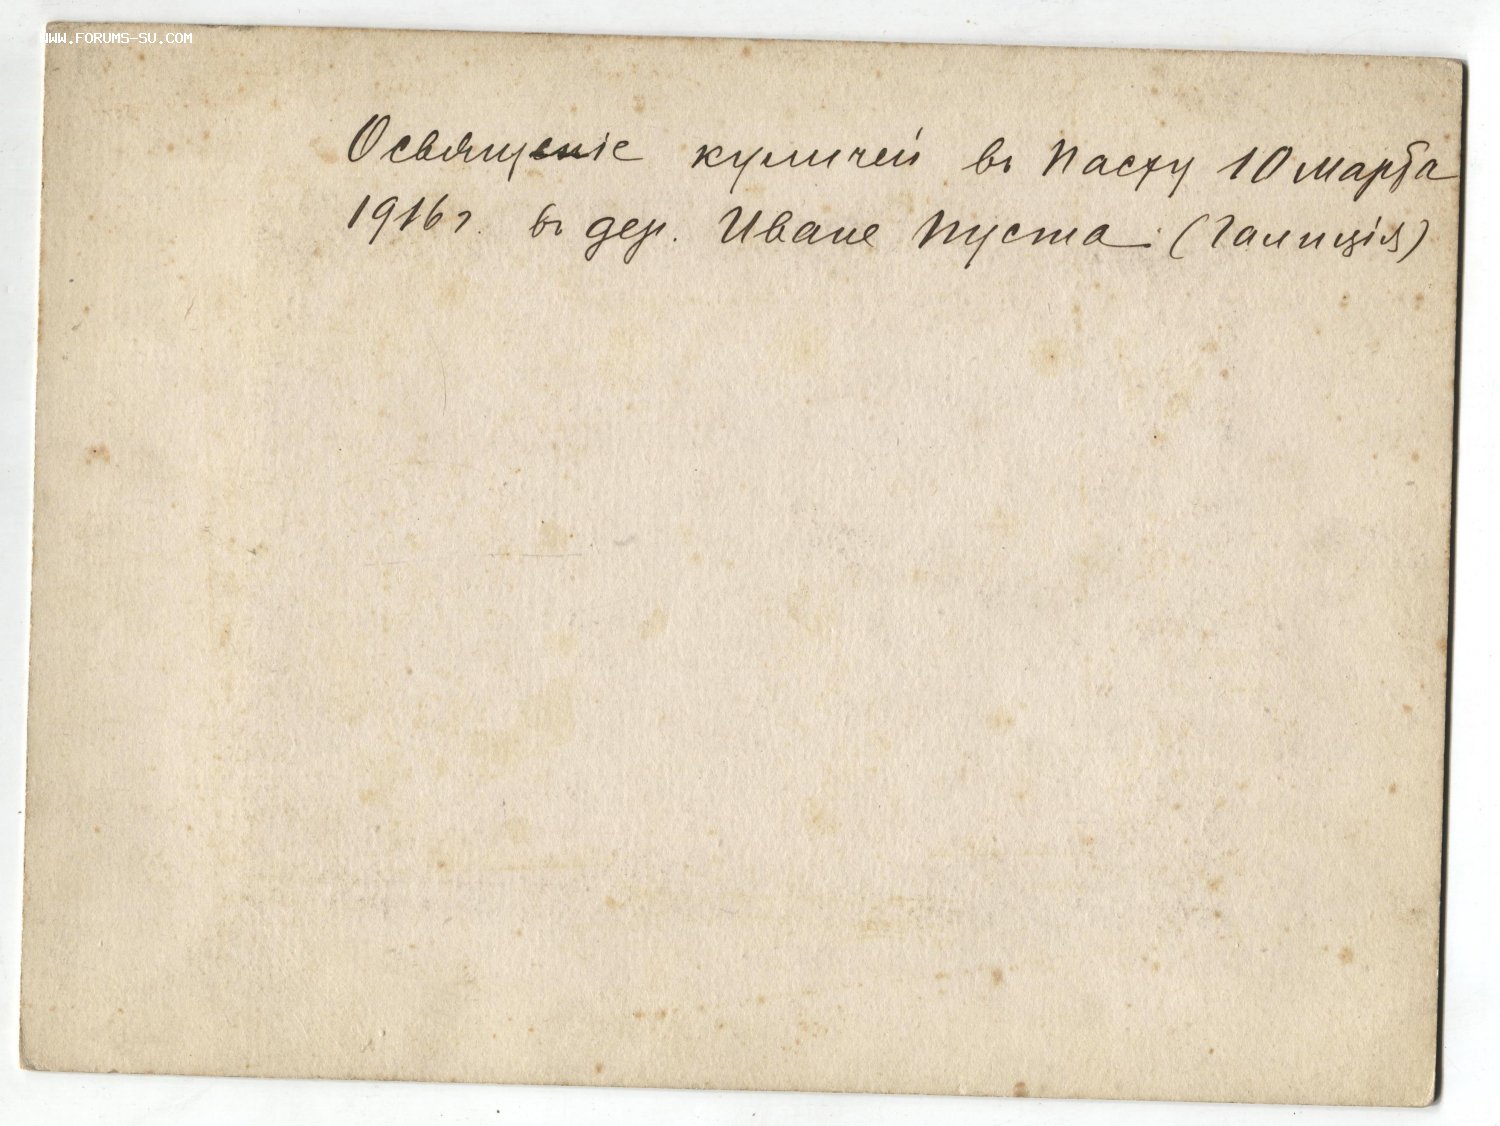 WWW.FORUMS-SU.COM
Освященіе куличей въ Пасху 10 марта
1916 г. въ дер. Иване Пуста (Галиція)